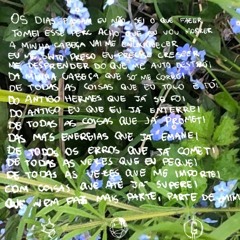 OS DIAS PASSAM EU NÃO SEI O QUE FAZER
TOMEI ESSE PERC ACHO QUE EU VOU MORRER
A MINHA CABEÇA VAI ME ENLOUQUECER
EU ME SINTO PRESO EU PRECISO CRESCER
ME DESPRENDER DO QUE ME AUTO DESTRÓI
DA MINHA CABEÇA QUE SÓ ME CORRÓI
DE TODAS AS COISAS QUE EU TOCO E DÓI
DO ANTIGO HERMES QUE JÁ SE FOI
DO ANTIGO EU QUE EU JÁ ENTERREI
DE TODAS AS COISAS QUE JÁ PROMETI
DAS MÁS ENERGIAS QUE JÁ EMANEI
DE TODOS OS ERROS QUE JÁ COMETI
DE TODAS AS VEZES QUE EU PEQUEI
DE TODAS AS VEZES QUE ME IMPORTEI
COM COISAS QUE ATÉ JÁ SUPEREI
QUE NEM FAZ MAIS PARTE, PARTE DE MIM